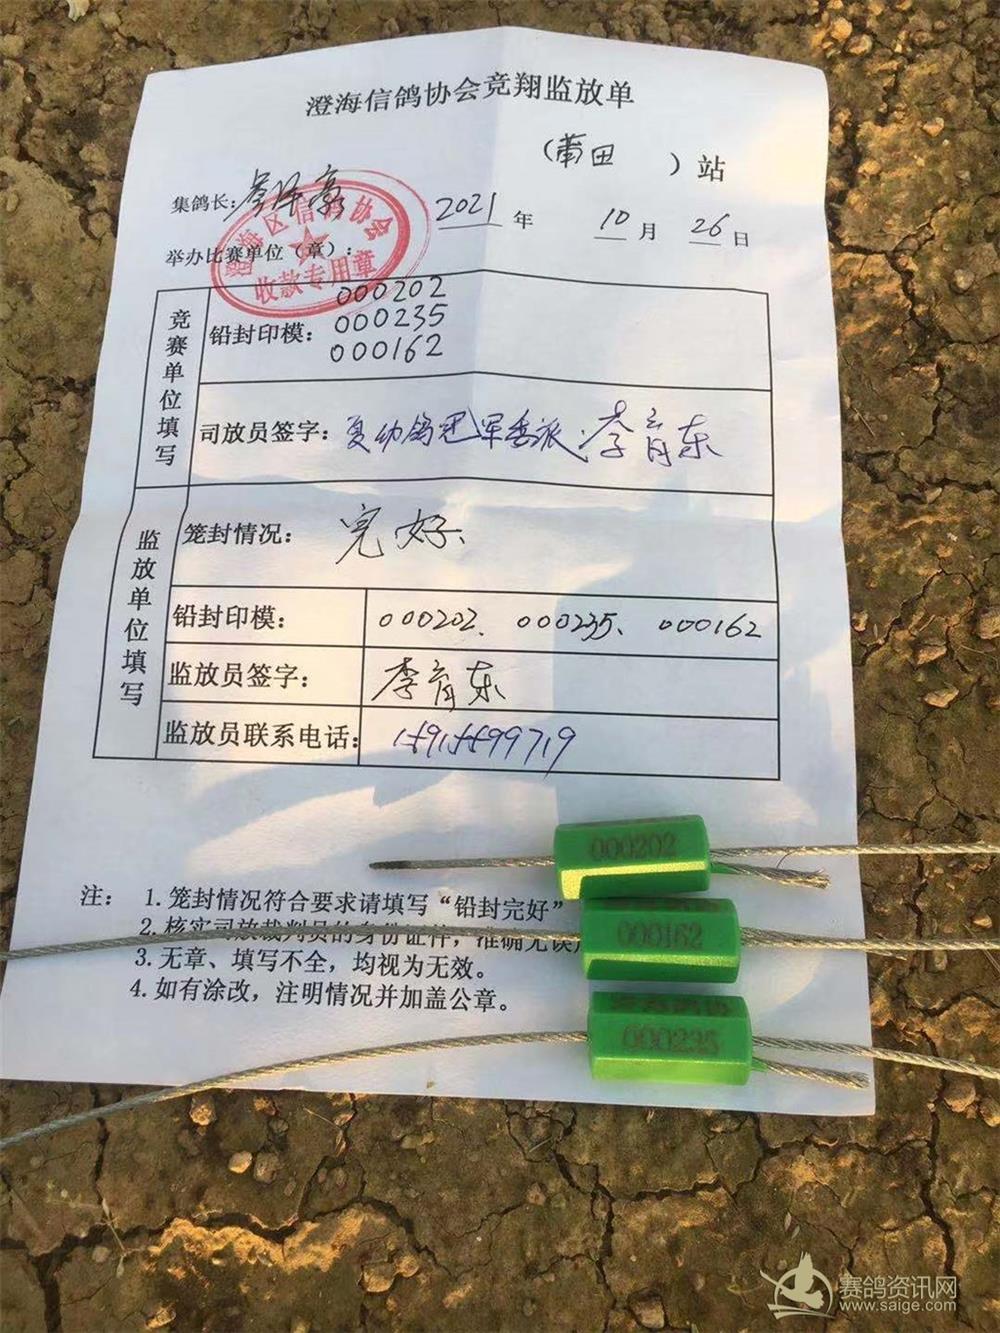 澄海信鸽协会竞翔监放单
（莆田 ）站
集鸽长：
2021 年 10 月 26 日
举办比赛单位（章）：
澄海区信鸽协会
收款专用章
竞赛单位填写
铅封印模：
000202
000235
000162
司放员签字：夏幼鸽冠军委派：李育东
监放单位填写
笼封情况：完好
铅封印模：000202、000235、000162
监放员签字：李育东
监放员联系电话：15915499719
注：1.笼封情况符合要求请填写“铅封完好”
2.核实司放裁判员的身份证件，准确无误
3.无章、填写不全，均视为无效。
4.如有涂改，注明情况并加盖公章。
000202
000162
000235
赛鸽资讯网
www.saige.com